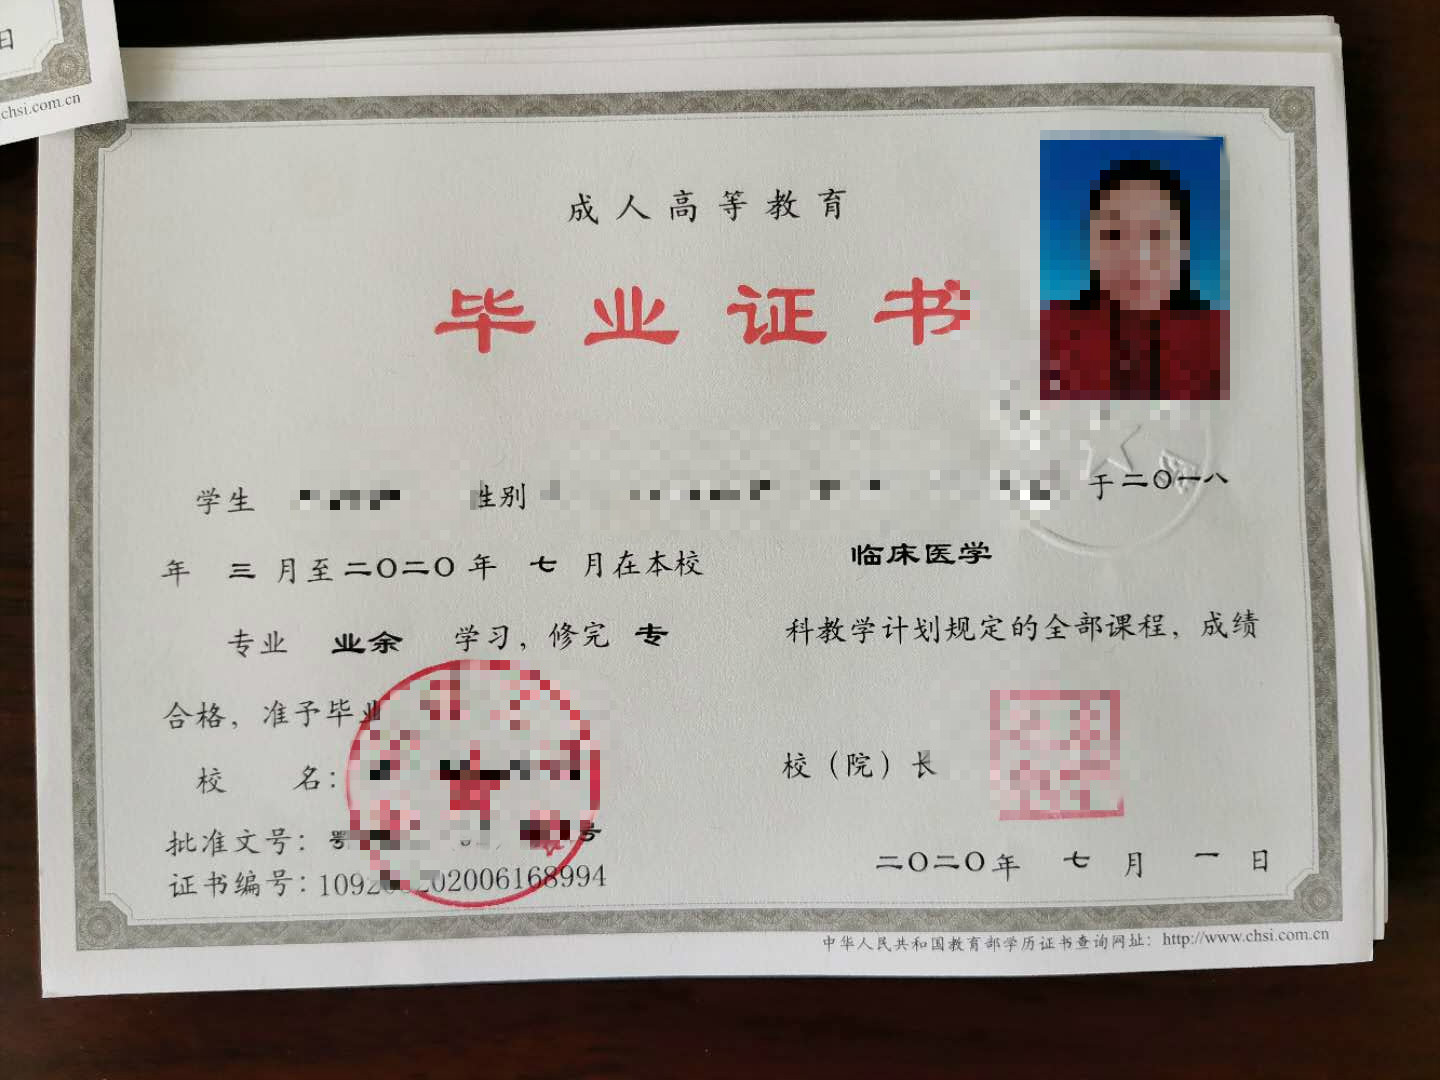 日
chsi.com.cn
成人高等教育
毕业证书
学生 性别 于二〇一八
年 三 月至二〇二〇年 七 月在本校 临床医学
专业 业余 学习，修完 专 科教学计划规定的全部课程，成绩
合格，准予毕业
校 名： 校（院）长
批准文号：鄂 号
证书编号： 二〇二〇年 七 月 一 日
中华人民共和国教育部学历证书查询网址：http://www.chsi.com.cn